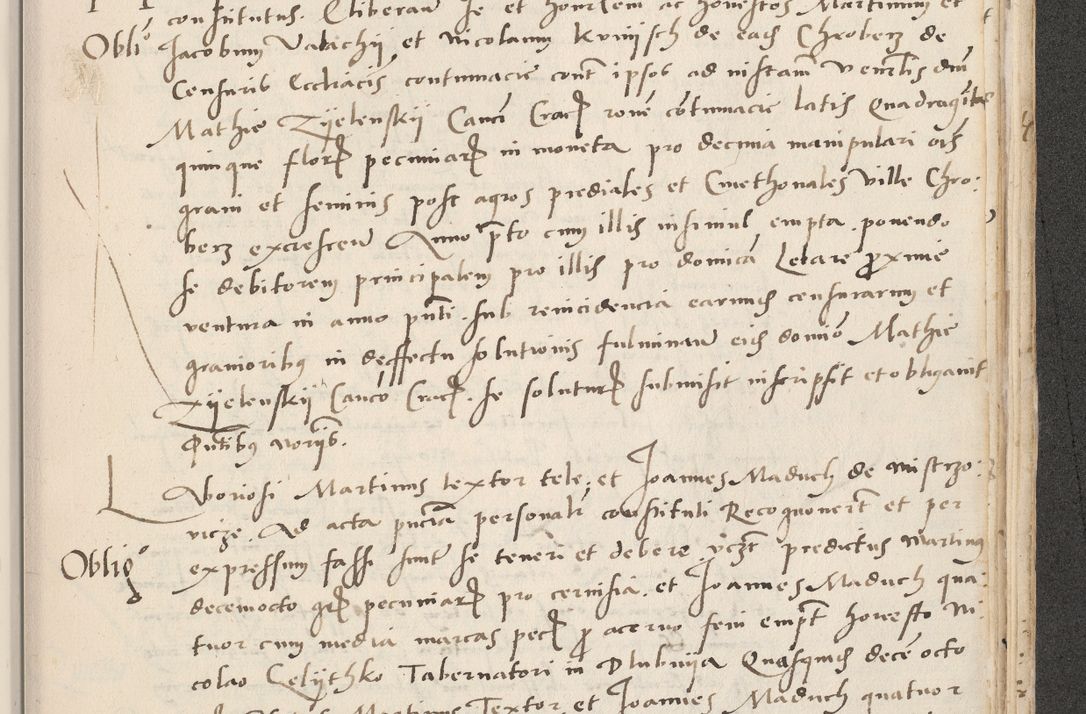 constitutus. Cliberavit se et honestum ac honestos Martinum et
Obligo Jacobum Valachij et Nicolaum Kvnijsch de eadem Chroberz de
Censuris Ecclesiacis contumacie cont ipsos ad instam Venerlis dni
Mathie Zijelenskij Canci Crac rone contumacie latis Quadraginta
quinque flor pecuniar in moneta pro decima manipulari ois
grani et seminis post agros prediales et Cmethonales Ville Chro:
berz excrescen Anno pnto cum illis insimul empta ponendo
se debitorem principalem pro illis pro domica Letare proxime
ventura in anno pnti. sub reincidencia earundem censurarum et
gravioribus in deffectu solutionis fulminan eidem domino Mathie
Zijelenskij Canco Crac. se soluturum submisit inscripsit et obligavit
Pntibus Notrijs.
Laboriosi Martinus textor tele, et Joannes Maduch de Mistrzo:
vicze. Ad acta pncia personalr constituti Recognovert et per
Obligo expressum fassi sunt se teneri et debere vczt predictus Martinus
decemocto gr pecuniar pro cervisia. et Joannes Maduch qua:
tuor cum media marcas pec pro acervo feni empt honesto Ni:
colao Celijthko Tabernatori in Dlubnija Quasquidem decem octo
Martinus Textor et Joannes Maduch quatuor